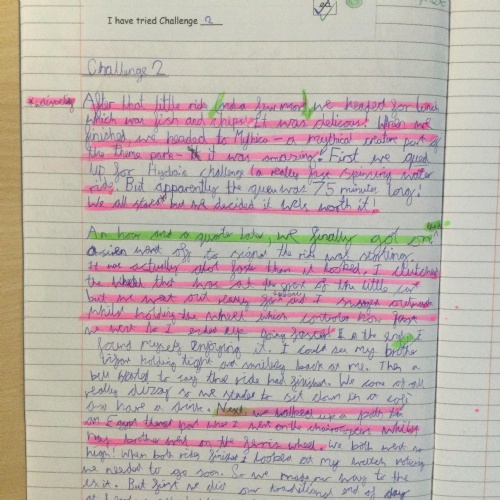 I have tried Challenge 2
Challenge 2
After that little ride and a few more we headed for lunch
which was fish and chips! It was delicous! When we
finished we headed to Mythica – a mythical creature part of
the theme park – it was amazing! First we qued
up for Hydra's challenge (a really huge spinning water
ride). But apparently the queue was 75 minutes long!
We all but we decided it was worth it!
An hour and a quote later, we finally got on
a siren went off to signal the ride was starting.
It was actually alot faster then it looked. I clutched
the wheel that was at the spot of the little car
but we went out very and I
whilst holding the wheel which controles how fast
we went so I ended up going faster! In the end I
found myself enjoying it. I could see my brother
holding tight and smiling back at me. Then a
bell to say the ride had finished. We came of all
really dizzy so we headed to sit down in a café
and have a drink. Next, we walked up a path to
an Egypt themed part where I went on the whilst
my brother went on the ferris wheel. We both went so
high! When both rides finished I looked at my watch
we needed to go soon. So we made our way to the
exit. But first we did our end of day